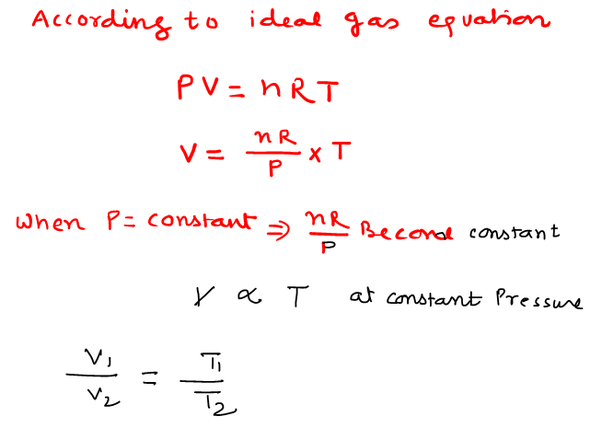 According to ideal gas equation
PV = nRT
V = nR/P x T
when P = constant ⇒ nR/P Become constant
V ∝ T at constant Pressure
V1/V2 = T1/T2